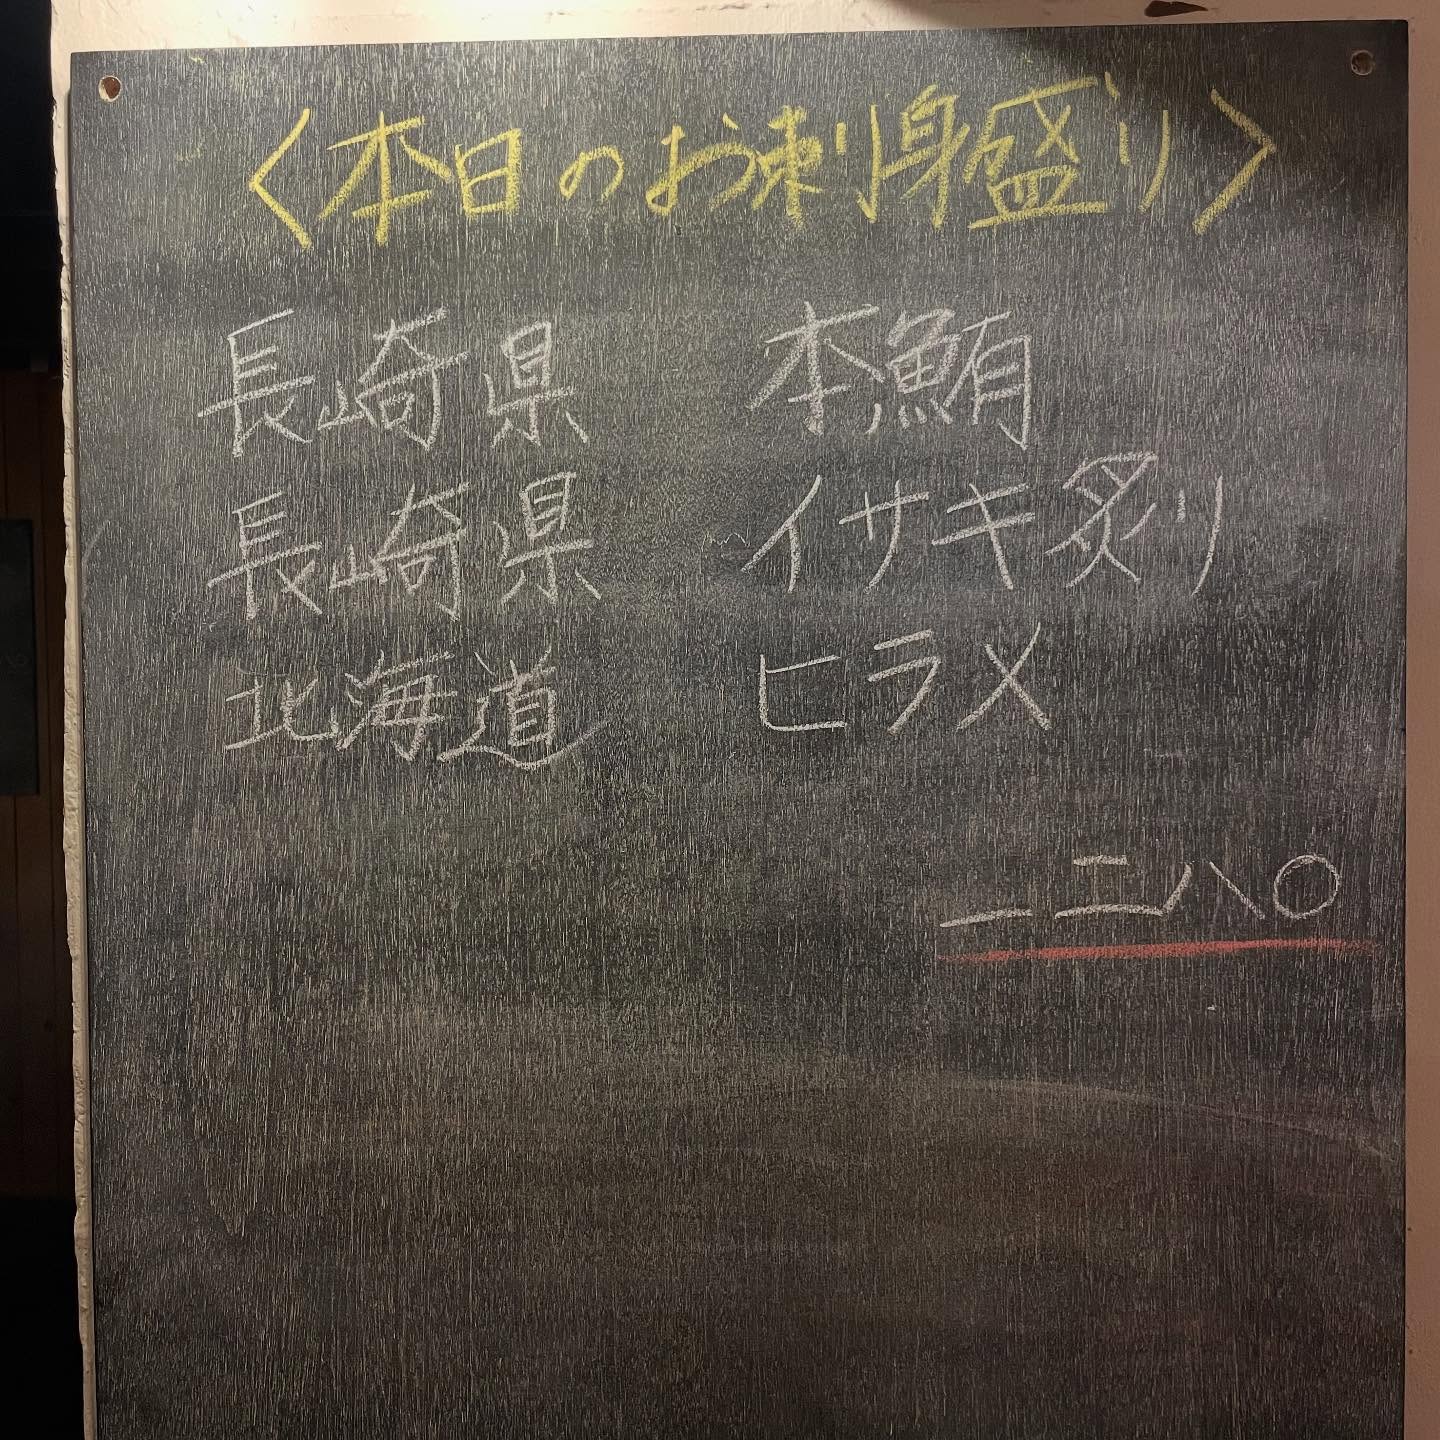 〈本日のお刺身盛り〉
長崎県 本鮪
長崎県 イサキ炙り
北海道 ヒラメ
一二八〇